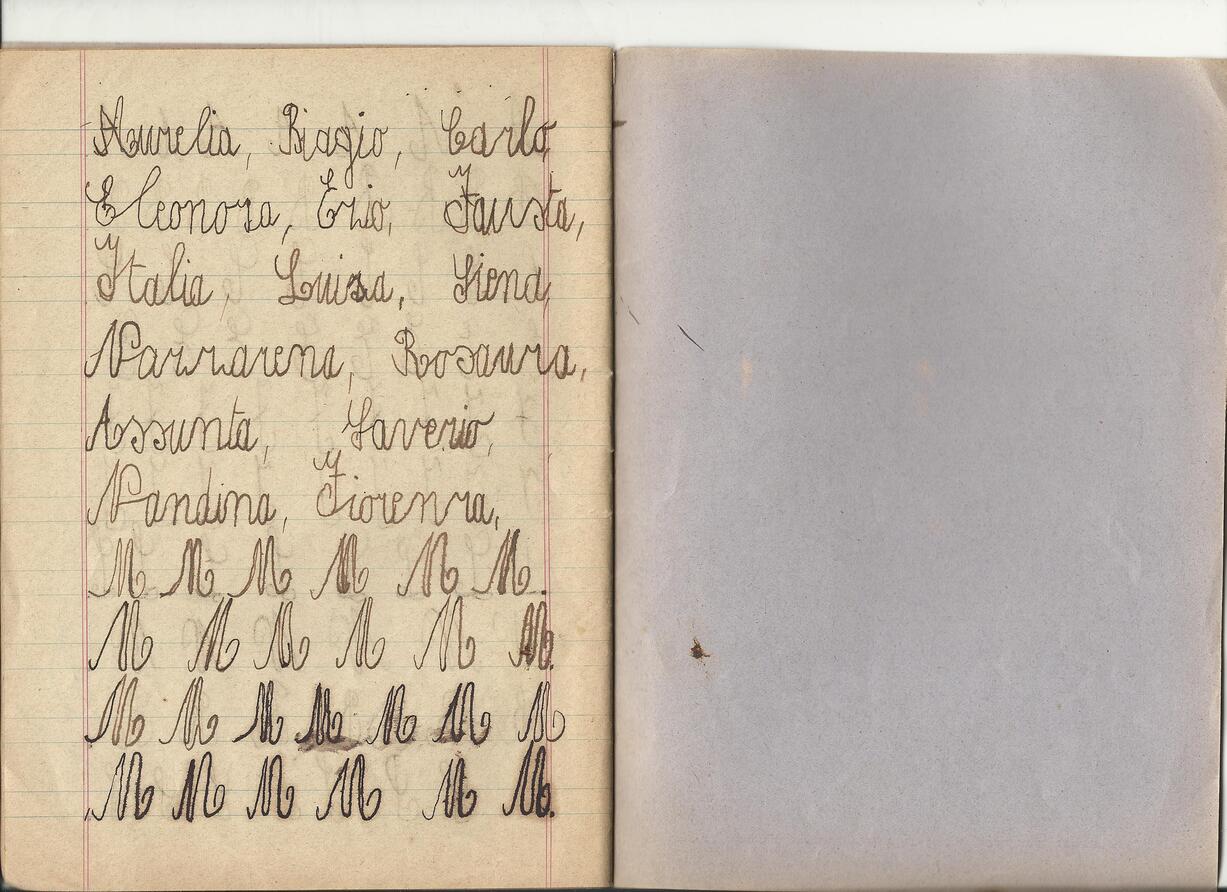 Aurelia, Biagio, Carlo,
Eleonora, Ezio, Fausta,
Italia, Luisa, Siena,
Nazzarena, Rosaura,
Assunta, Saverio,
Nandina, Fiorenza,
M M M M M M.
M M M M M M.
M M M M M M M
M M M M M M.